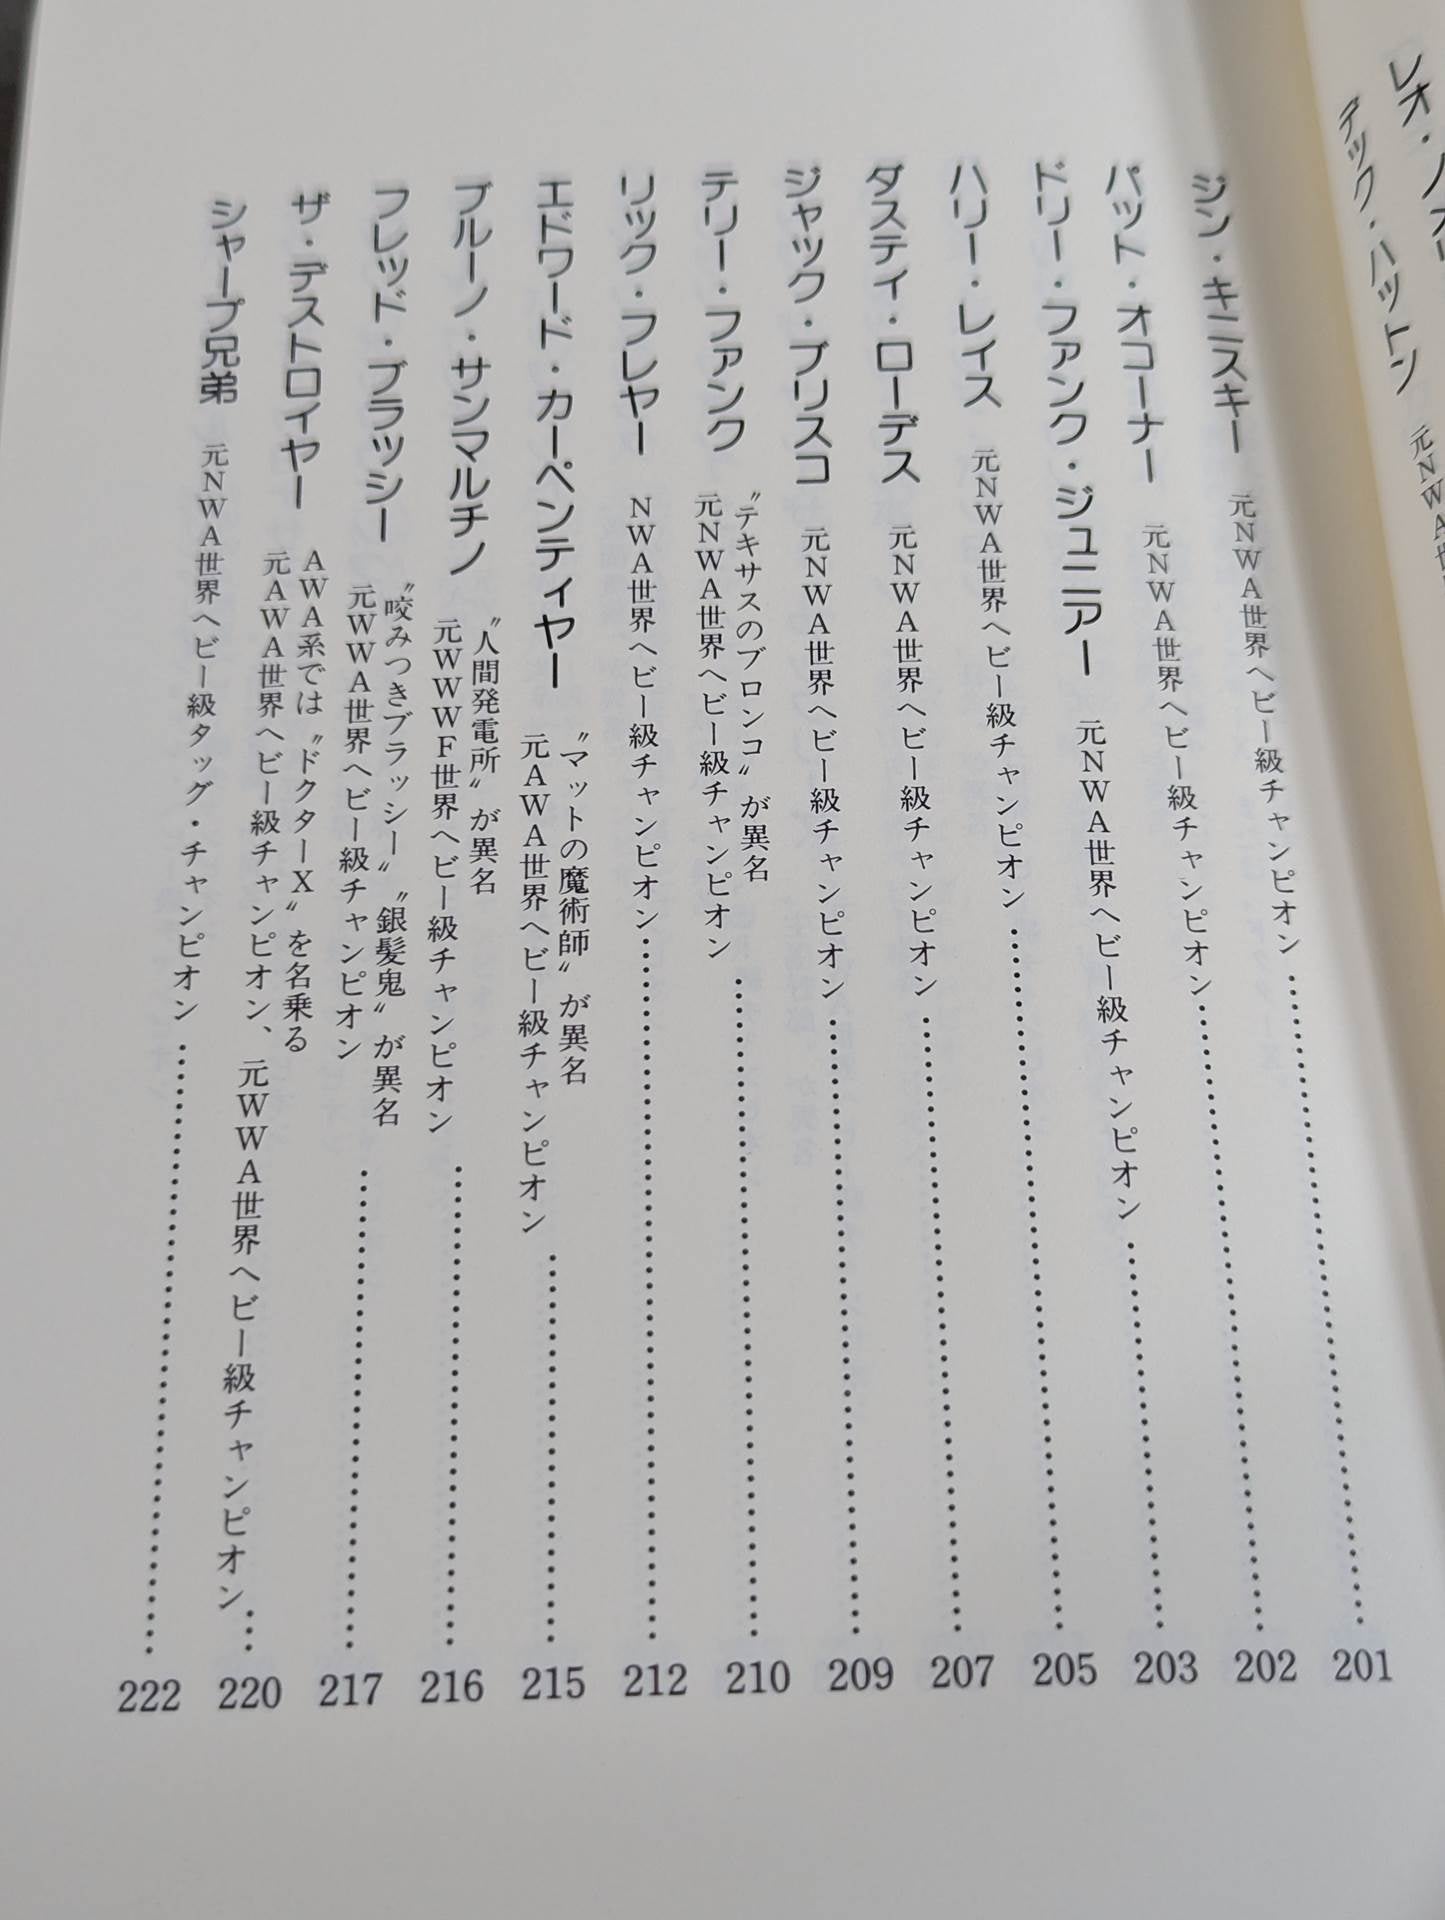 ジン・キニスキー 元NWA世界ヘビー級チャンピオン……201
パット・オコーナー 元NWA世界ヘビー級チャンピオン……202
ドリー・ファンク・ジュニアー 元NWA世界ヘビー級チャンピオン……203
ハリー・レイス 元NWA世界ヘビー級チャンピオン……205
ダスティ・ローデス 元NWA世界ヘビー級チャンピオン……207
ジャック・ブリスコ 元NWA世界ヘビー級チャンピオン……209
テリー・ファンク 〝テキサスのブロンコ〟が異名
元NWA世界ヘビー級チャンピオン……210
リック・フレヤー NWA世界ヘビー級チャンピオン……212
エドワード・カーペンティヤー 〝マットの魔術師〟が異名
元AWA世界ヘビー級チャンピオン……215
ブルーノ・サンマルチノ 〝人間発電所〟が異名
元WWWF世界ヘビー級チャンピオン……216
フレッド・ブラッシー 〝咬みつきブラッシー〟〝銀髪鬼〟が異名
元WWA世界ヘビー級チャンピオン……217
ザ・デストロイヤー AWA系では〝ドクターX〟を名乗る
元AWA世界ヘビー級チャンピオン、元WWA世界ヘビー級チャンピオン……220
シャープ兄弟 元NWA世界ヘビー級タッグ・チャンピオン……222